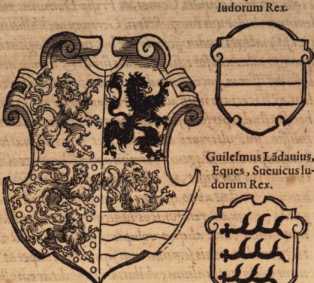 ludorum Rex.
Guilelmus Lãdauius,
Eques, Sueuicus lu-
dorum Rex.